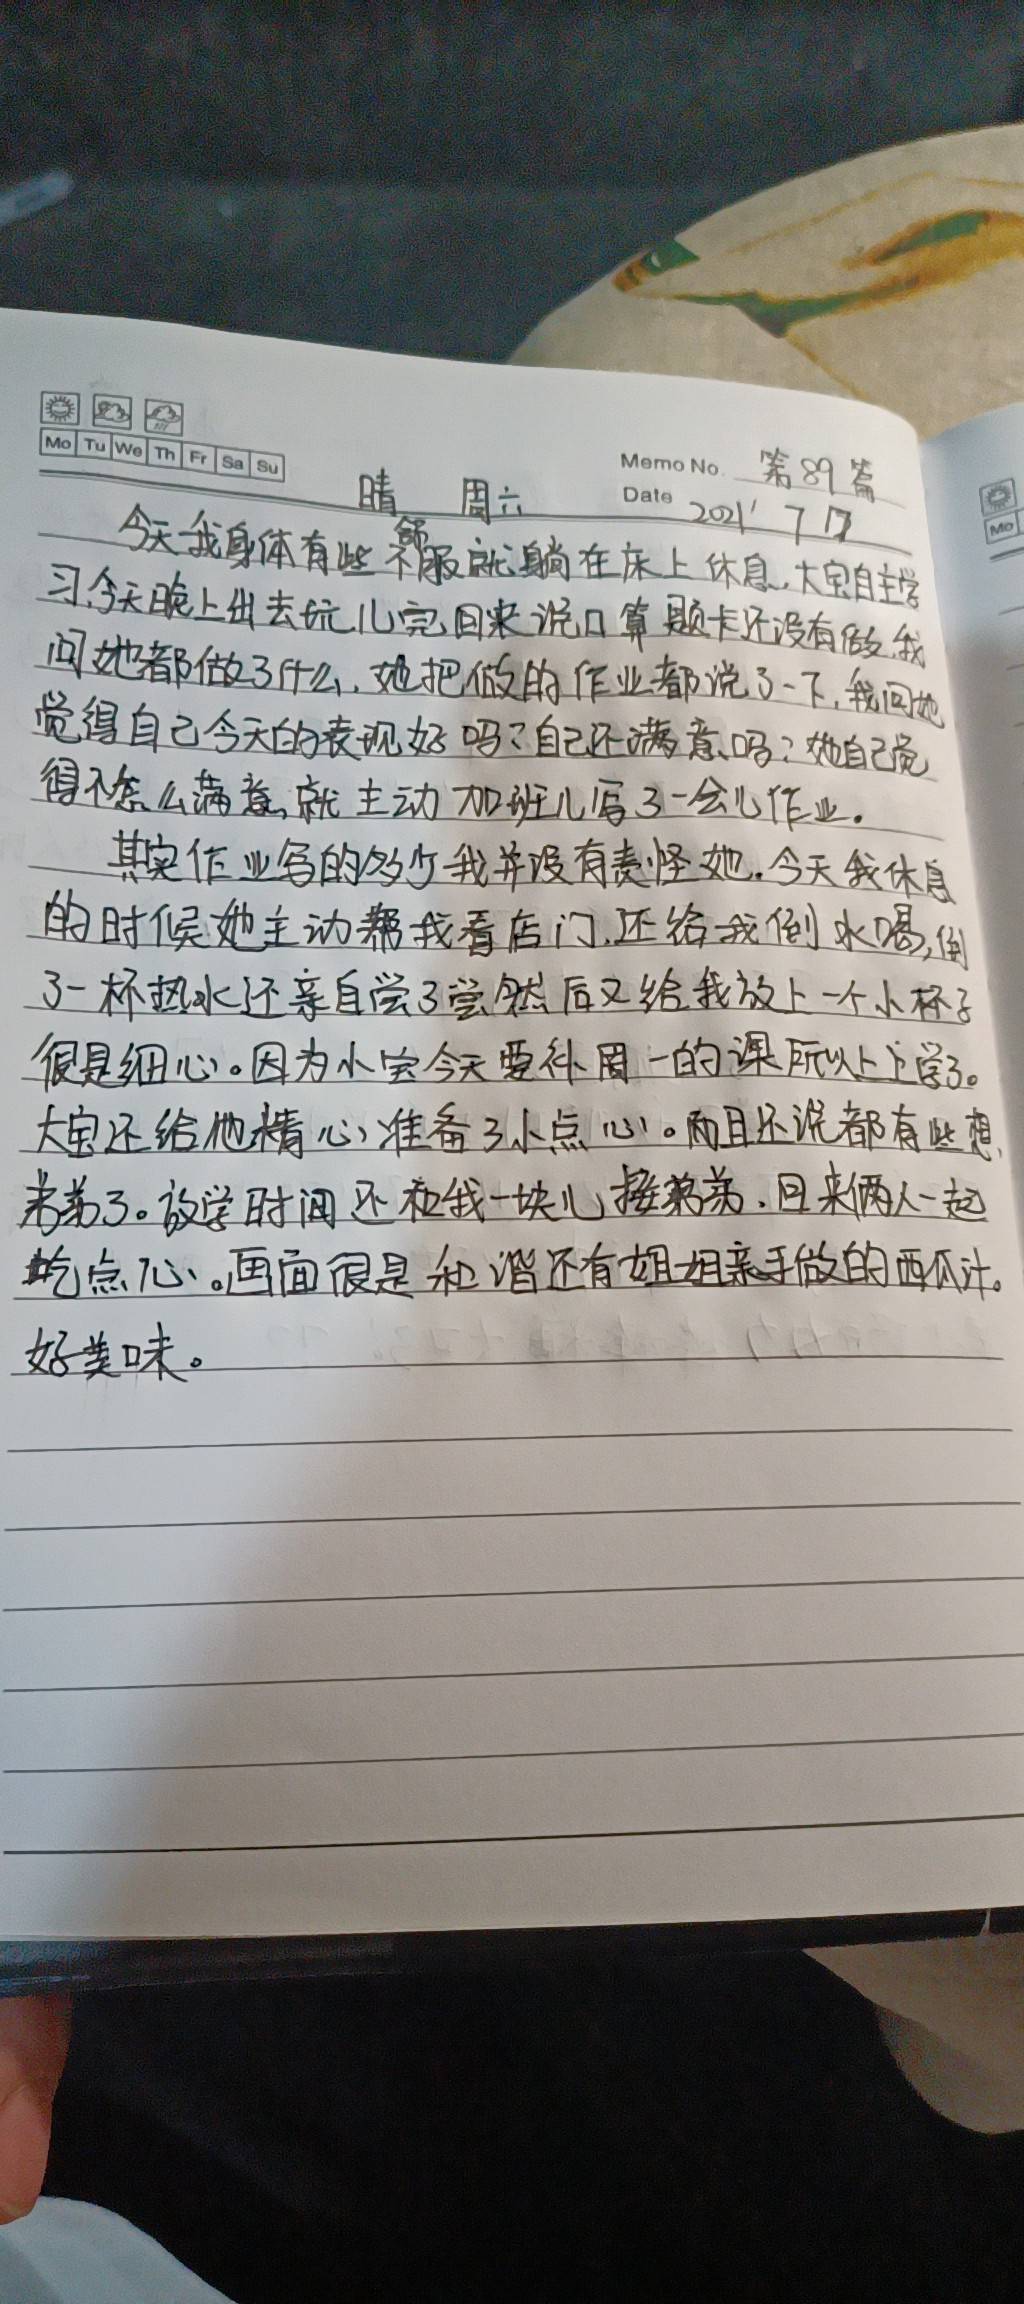 Mo Tu We Th Fr Sa Su
Memo No. 第89篇
Date 2021 7 17
晴 周六
Mo
今天我身体有些不舒服就躺在床上休息,大宝自主学
习,今天晚上出去玩儿完回来说口算题卡还没有做,我
问她都做了什么,她把做的作业都说了一下,我问她
觉得自己今天的表现好吗?自己还满意吗?她自己觉
得不怎么满意,就主动加班儿写了一会儿作业。
其实作业写的多少我并没有责怪她.今天我休息
的时候她主动帮我看店门,还给我倒水喝,倒
了一杯热水还亲自尝了尝然后又给我放上一个小杯子
很是细心。因为小宝今天要补周一的课所以上上学了。
大宝还给他精心准备了小点心。而且还说都有些想
弟弟了。放学时间还和我一块儿接弟弟.回来俩人一起
吃点心。画面很是和谐还有姐姐亲手做的西瓜汁。
好美味。